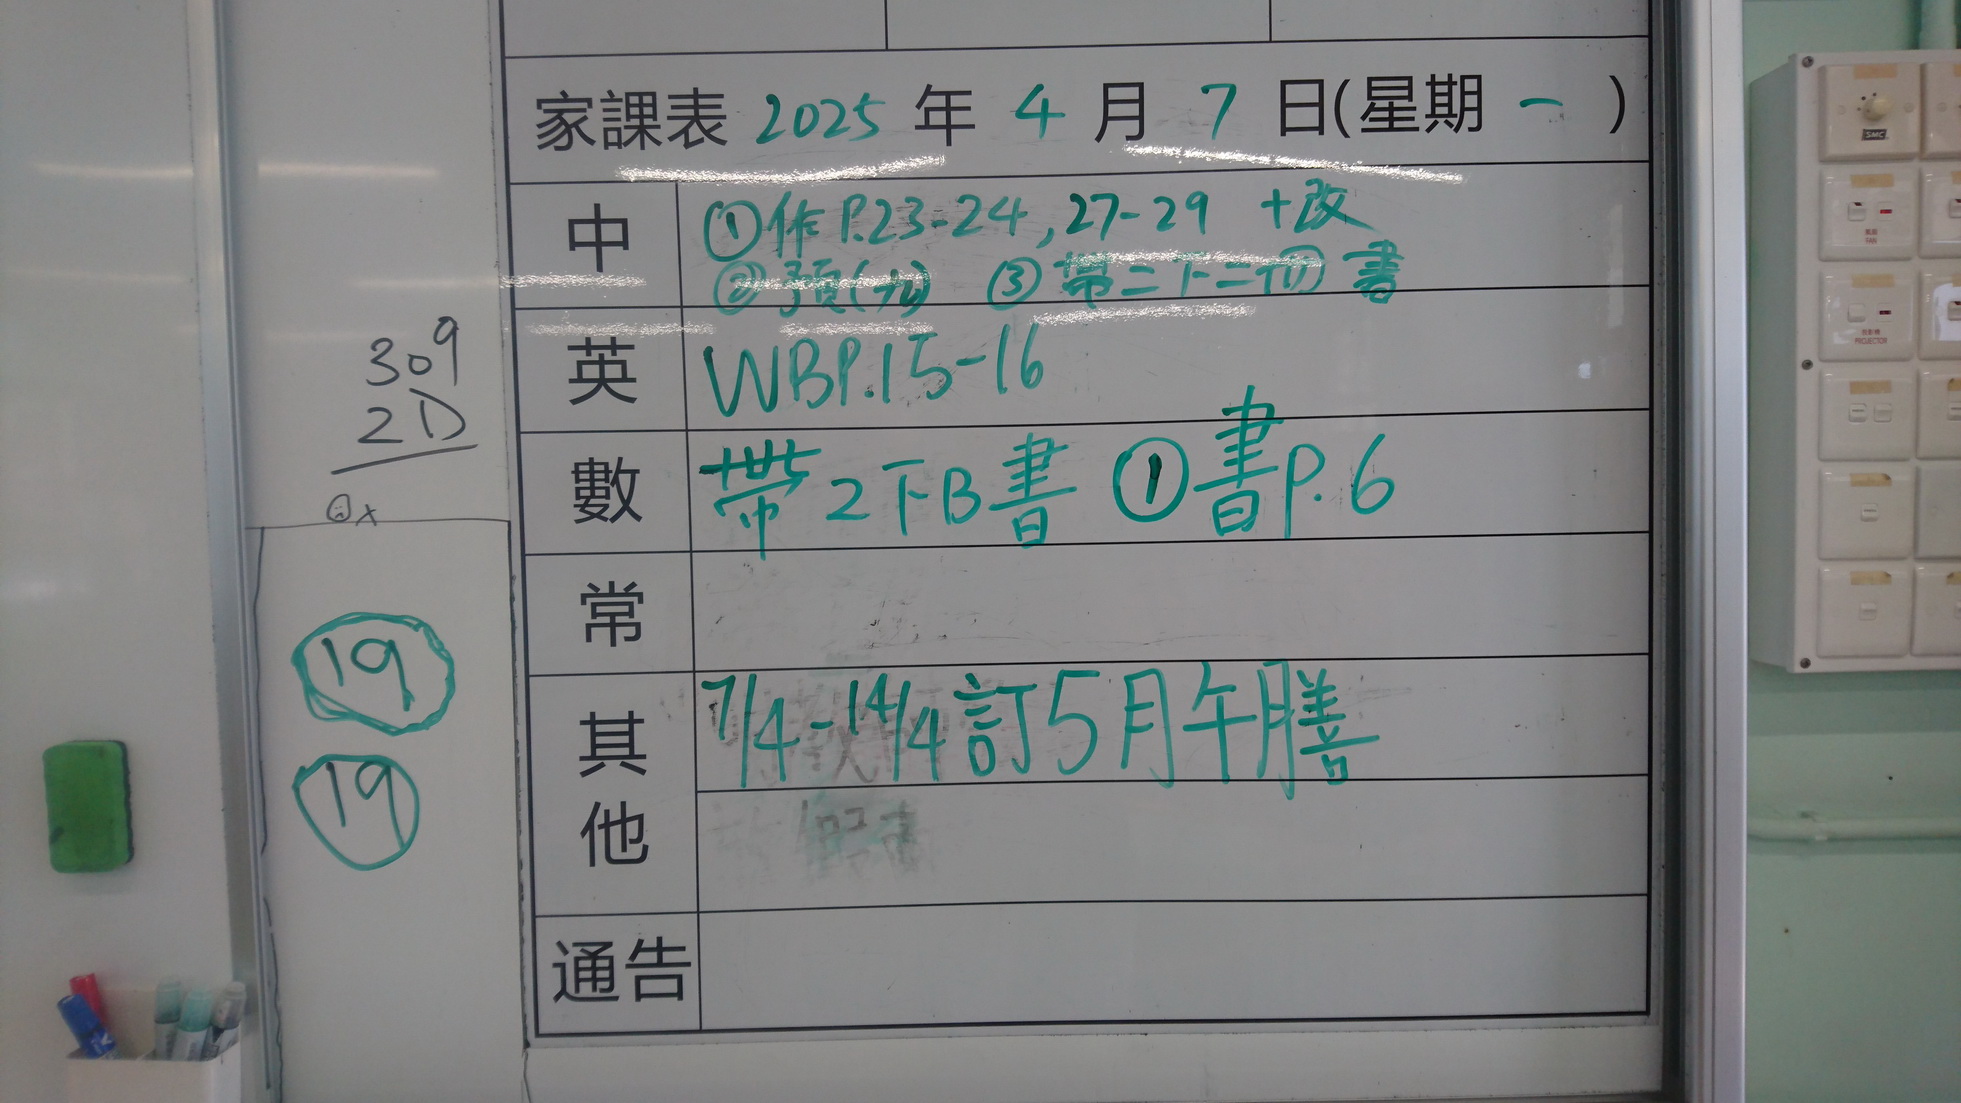 家課表 2025 年 4 月 7 日(星期 一 )
中
①作 P.23-24, 27-29 +改
②預(九) ③帶二下二冊 書
英
WBP.15-16
數
帶 2下B書 ①書P.6
常
其他
7/4-14/4訂5月午膳
通告
309
2D
19
19
SMC
FAN
PROJECTOR